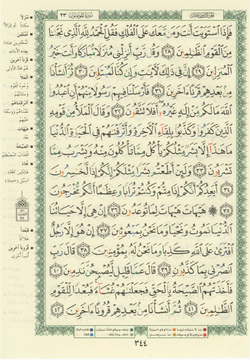 فَإِذَا ٱسْتَوَيْتَ أَنتَ وَمَن مَّعَكَ عَلَى ٱلْفُلْكِ فَقُلِ ٱلْحَمْدُ لِلَّهِ ٱلَّذِى نَجَّىٰنَا
مِنَ ٱلْقَوْمِ ٱلظَّٰلِمِينَ ٢٨ وَقُل رَّبِّ أَنزِلْنِى مُنزَلًا مُّبَارَكًا وَأَنتَ خَيْرُ
ٱلْمُنزِلِينَ ٢٩ إِنَّ فِى ذَٰلِكَ لَءَايَٰتٍ وَإِن كُنَّا لَمُبْتَلِينَ ٣٠ ثُمَّ أَنشَأْنَا
مِنۢ بَعْدِهِمْ قَرْنًا ءَاخَرِينَ ٣١ فَأَرْسَلْنَا فِيهِمْ رَسُولًا مِّنْهُمْ أَنِ ٱعْبُدُوا۟
ٱللَّهَ مَا لَكُم مِّنْ إِلَٰهٍ غَيْرُهُۥٓ أَفَلَا تَتَّقُونَ ٣٢ وَقَالَ ٱلْمَلَأُ مِن قَوْمِهِ
ٱلَّذِينَ كَفَرُوا۟ وَكَذَّبُوا۟ بِلِقَآءِ ٱلْءَاخِرَةِ وَأَتْرَفْنَٰهُمْ فِى ٱلْحَيَوٰةِ ٱلدُّنْيَا
مَا هَٰذَآ إِلَّا بَشَرٌ مِّثْلُكُمْ يَأْكُلُ مِمَّا تَأْكُلُونَ مِنْهُ وَيَشْرَبُ مِمَّا
تَشْرَبُونَ ٣٣ وَلَئِنْ أَطَعْتُم بَشَرًا مِّثْلَكُمْ إِنَّكُمْ إِذًا لَّخَٰسِرُونَ ٣٤
أَيَعِدُكُمْ أَنَّكُمْ إِذَا مِتُّمْ وَكُنتُمْ تُرَابًا وَعِظَٰمًا أَنَّكُم مُّخْرَجُونَ ٣٥
هَيْهَاتَ هَيْهَاتَ لِمَا تُوعَدُونَ ٣٦ إِنْ هِىَ إِلَّا حَيَاتُنَا
ٱلدُّنْيَا نَمُوتُ وَنَحْيَا وَمَا نَحْنُ بِمَبْعُوثِينَ ٣٧ إِنْ هُوَ إِلَّا رَجُلٌ
ٱفْتَرَىٰ عَلَى ٱللَّهِ كَذِبًا وَمَا نَحْنُ لَهُۥ بِمُؤْمِنِينَ ٣٨ قَالَ رَبِّ
ٱنصُرْنِى بِمَا كَذَّبُونِ ٣٩ قَالَ عَمَّا قَلِيلٍ لَّيُصْبِحُنَّ نَٰدِمِينَ ٤٠
فَأَخَذَتْهُمُ ٱلصَّيْحَةُ بِٱلْحَقِّ فَجَعَلْنَٰهُمْ غُثَآءً فَبُعْدًا لِّلْقَوْمِ
ٱلظَّٰلِمِينَ ٤١ ثُمَّ أَنشَأْنَا مِنۢ بَعْدِهِمْ قُرُونًا ءَاخَرِينَ ٤٢
٣٤٤